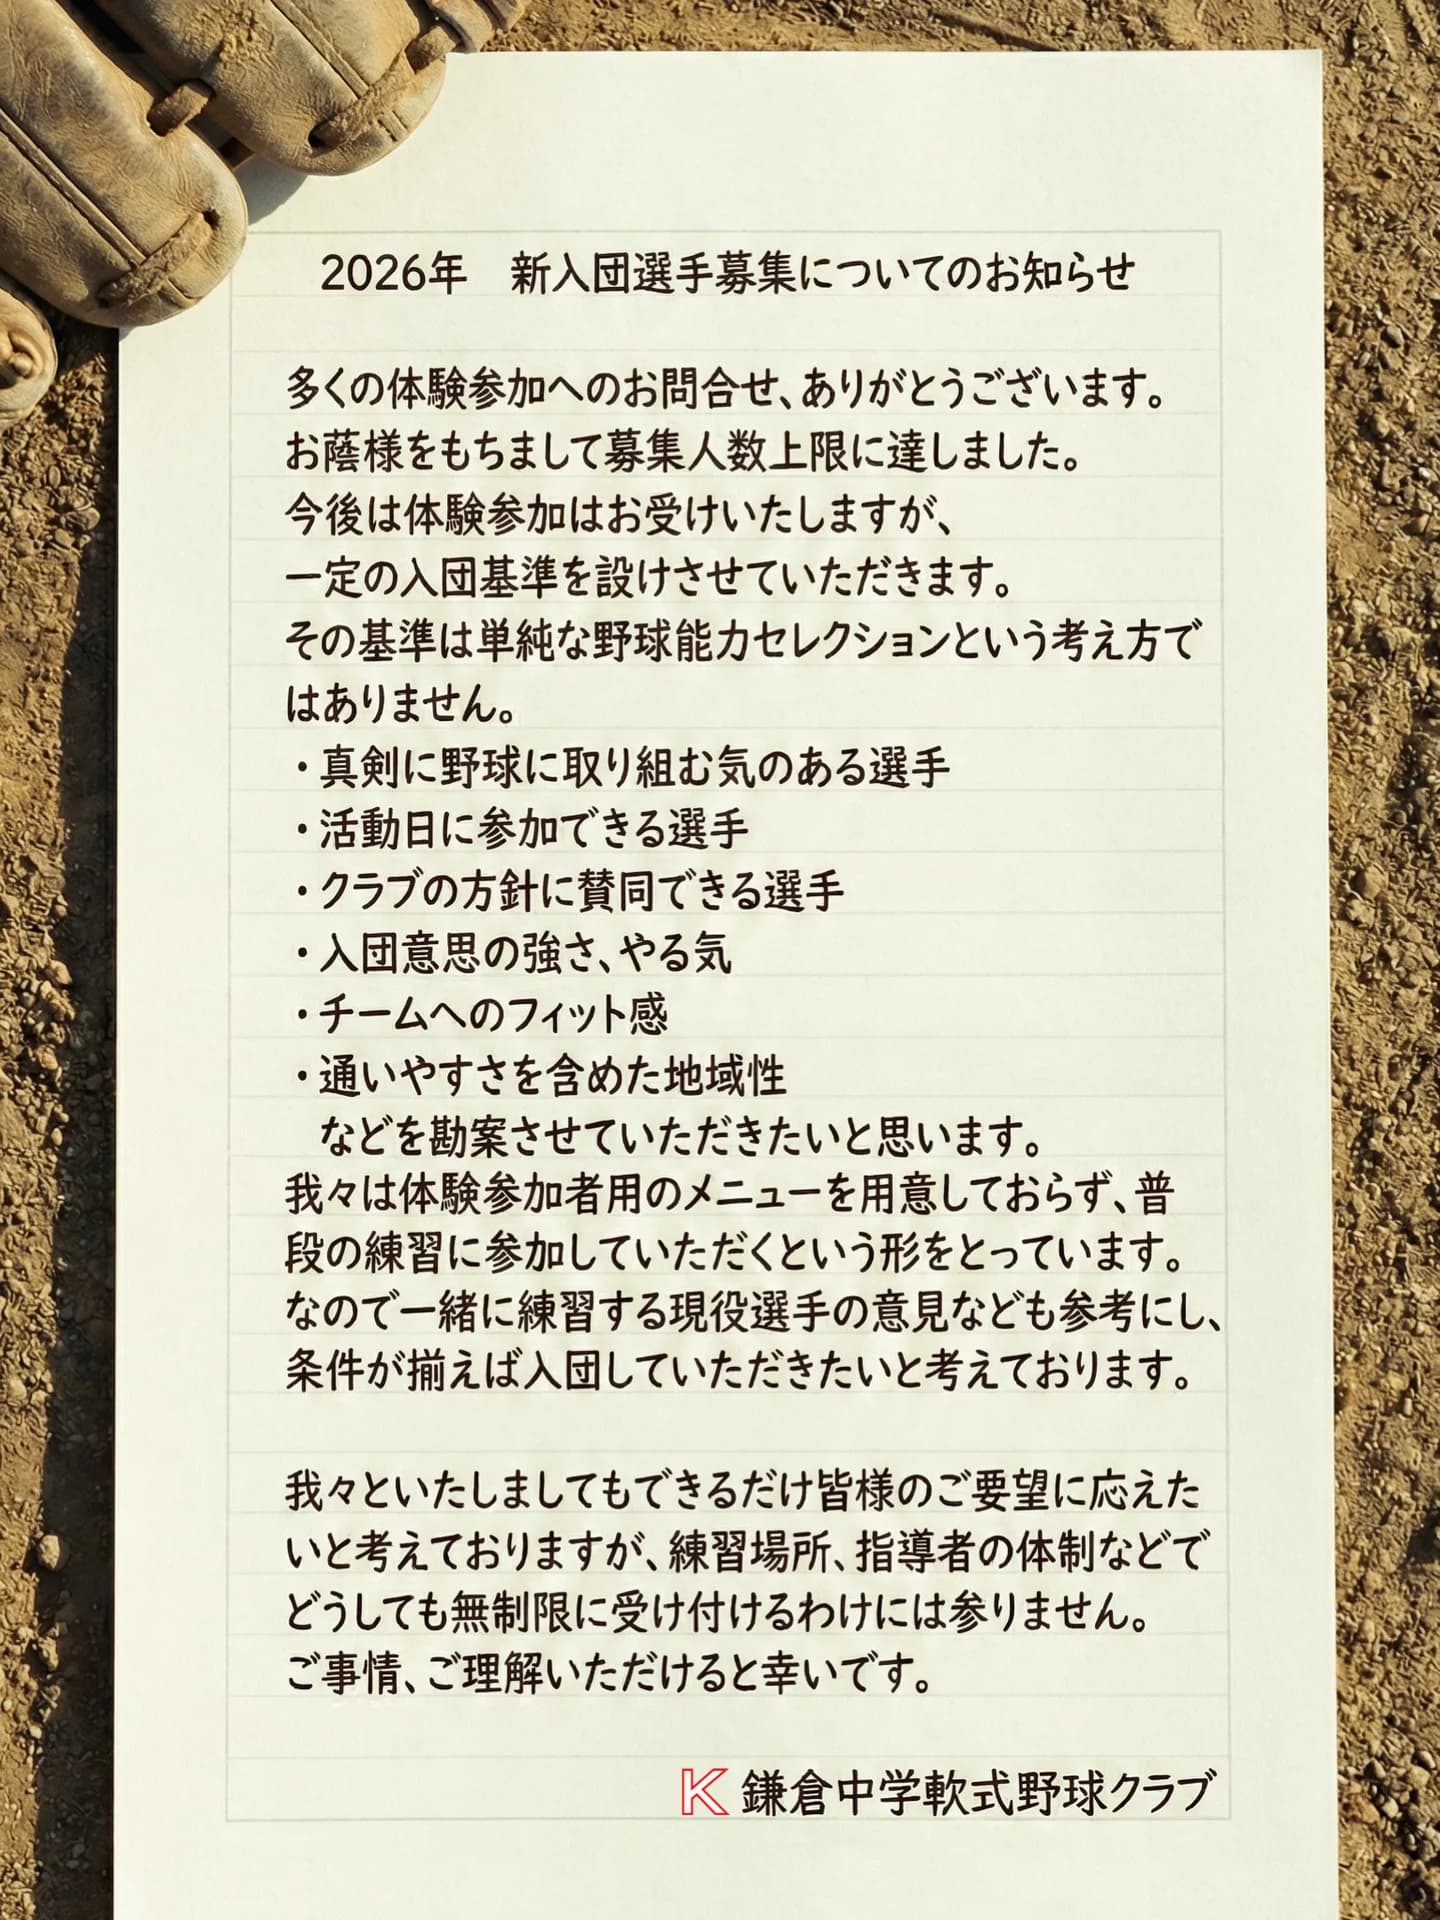 2026年　新入団選手募集についてのお知らせ
多くの体験参加へのお問合せ、ありがとうございます。
お蔭様をもちまして募集人数上限に達しました。
今後は体験参加はお受けいたしますが、
一定の入団基準を設けさせていただきます。
その基準は単純な野球能力セレクションという考え方で
はありません。
・真剣に野球に取り組む気のある選手
・活動日に参加できる選手
・クラブの方針に賛同できる選手
・入団意思の強さ、やる気
・チームへのフィット感
・通いやすさを含めた地域性
などを勘案させていただきたいと思います。
我々は体験参加者用のメニューを用意しておらず、普
段の練習に参加していただくという形をとっています。
なので一緒に練習する現役選手の意見なども参考にし、
条件が揃えば入団していただきたいと考えております。
我々といたしましてもできるだけ皆様のご要望に応えた
いと考えておりますが、練習場所、指導者の体制などで
どうしても無制限に受け付けるわけには参りません。
ご事情、ご理解いただけると幸いです。
K 鎌倉中学軟式野球クラブ